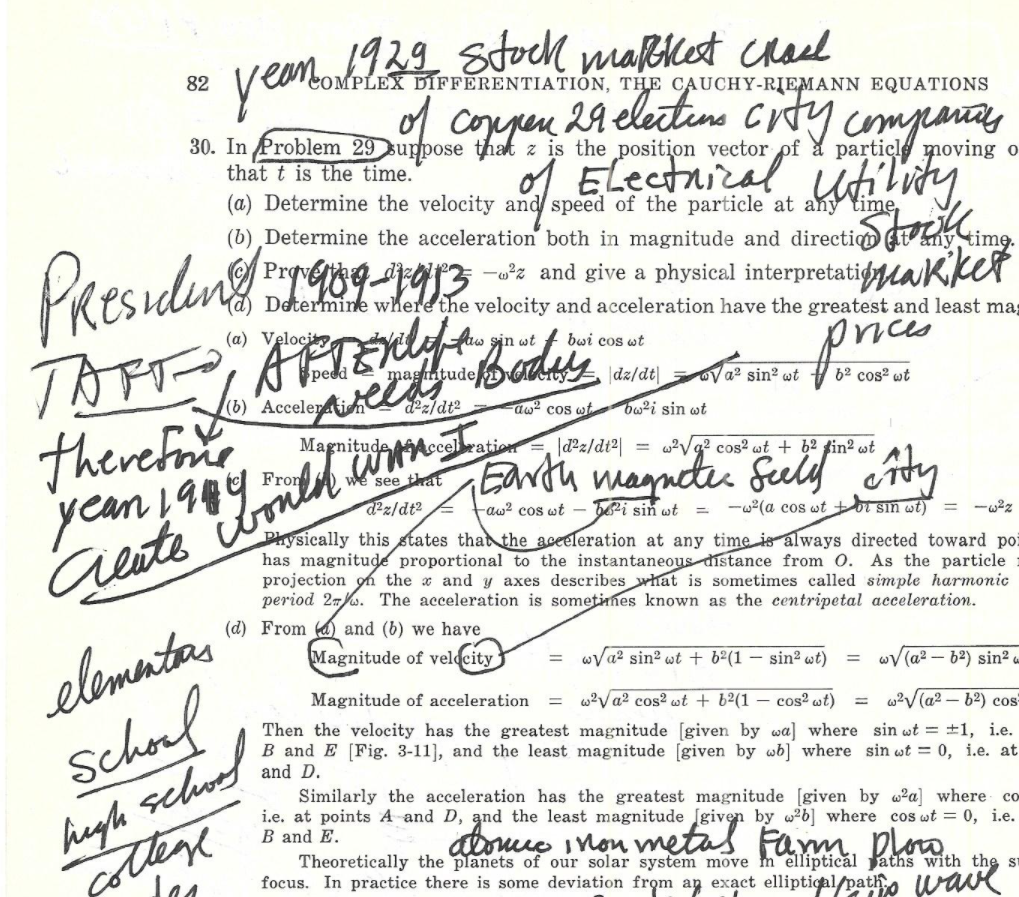 year 1929 stock market crash
82 COMPLEX DIFFERENTIATION, THE CAUCHY-RIEMANN EQUATIONS
of copper 29 electrons city companies
30. In Problem 29 suppose that z is the position vector of a particle moving o
that t is the time.
of Electrical Utility
(a) Determine the velocity and speed of the particle at any time.
(b) Determine the acceleration both in magnitude and direction at any time.
Stock
(c) Prove that d²z/dt² = −ω²z and give a physical interpretation
market
President 1909-1913
(d) Determine where the velocity and acceleration have the greatest and least mag
prices
(a) Velocity = dz/dt = −aω sin ωt + bωi cos ωt
TAFT AFTERlife
Speed = magnitude of velocity = |dz/dt| = ω√a² sin² ωt + b² cos² ωt
needs Bodies
(b) Acceleration = d²z/dt² = −aω² cos ωt − bω²i sin ωt
Magnitude of acceleration = |d²z/dt²| = ω²√a² cos² ωt + b² sin² ωt
therefore
year 1914
create world war I
(c) From (b) we see that
Earth magnetic field city
d²z/dt² = −aω² cos ωt − bω²i sin ωt = −ω²(a cos ωt + bi sin ωt) = −ω²z
Physically this states that the acceleration at any time is always directed toward poi
has magnitude proportional to the instantaneous distance from O. As the particle
projection on the x and y axes describes what is sometimes called simple harmonic
period 2π/ω. The acceleration is sometimes known as the centripetal acceleration.
(d) From (a) and (b) we have
Magnitude of velocity = ω√a² sin² ωt + b²(1 − sin² ωt) = ω√(a² − b²) sin² ω
elementary
Magnitude of acceleration = ω²√a² cos² ωt + b²(1 − cos² ωt) = ω²√(a² − b²) cos
Then the velocity has the greatest magnitude [given by ωa] where sin ωt = ±1, i.e.
school
B and E [Fig. 3-11], and the least magnitude [given by ωb] where sin ωt = 0, i.e. at
and D.
high school
Similarly the acceleration has the greatest magnitude [given by ω²a] where co
i.e. at points A and D, and the least magnitude [given by ω²b] where cos ωt = 0, i.e.
B and E.
college
atomic iron metal Farm plow
Theoretically the planets of our solar system move in elliptical paths with the su
focus. In practice there is some deviation from an exact elliptical path.
wave